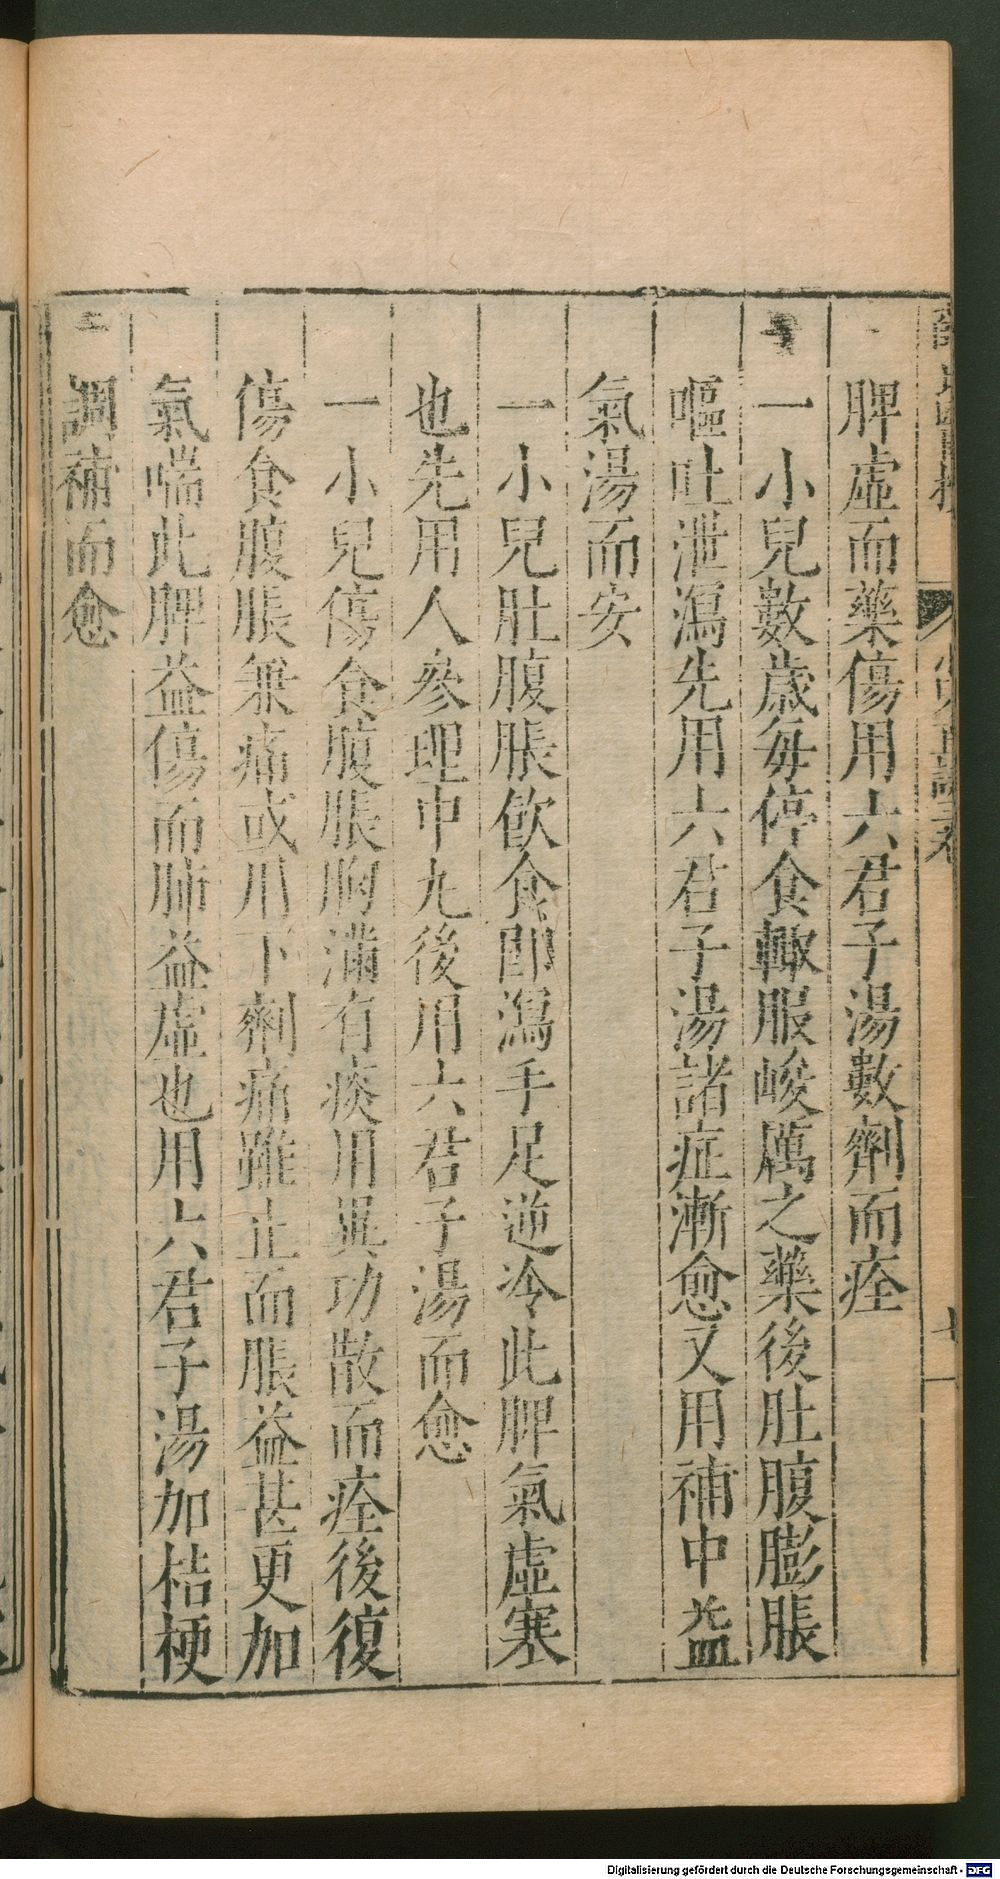 脾虛而藥傷用六君子湯數劑而痊
一小兒數歲每停食輙服峻厲之藥後肚腹膨脹
嘔吐泄瀉先用六君子湯諸症漸愈又用補中益
氣湯而安
一小兒肚腹脹飲食即瀉手足逆冷此脾氣虛寒
也先用人參理中丸後用六君子湯而愈
一小兒傷食腹脹胸滿有痰用異功散而痊後復
傷食腹脹兼痛或用下劑痛雖止而脹益甚更加
氣喘此脾益傷而肺益虛也用六君子湯加桔梗
調補而愈
Digitalisierung gefördert durch die Deutsche Forschungsgemeinschaft - DFG